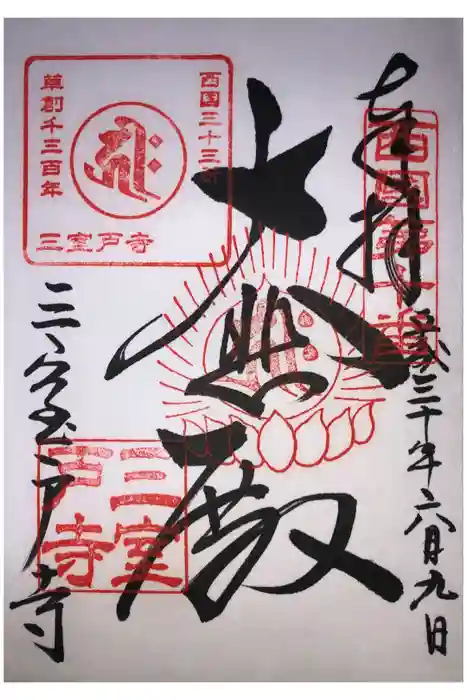 奉拝
西国第十番
平成三十年六月九日
大悲殿
西国三十三所
草創千三百年
三室戸寺
三室戸寺
三室
戸寺